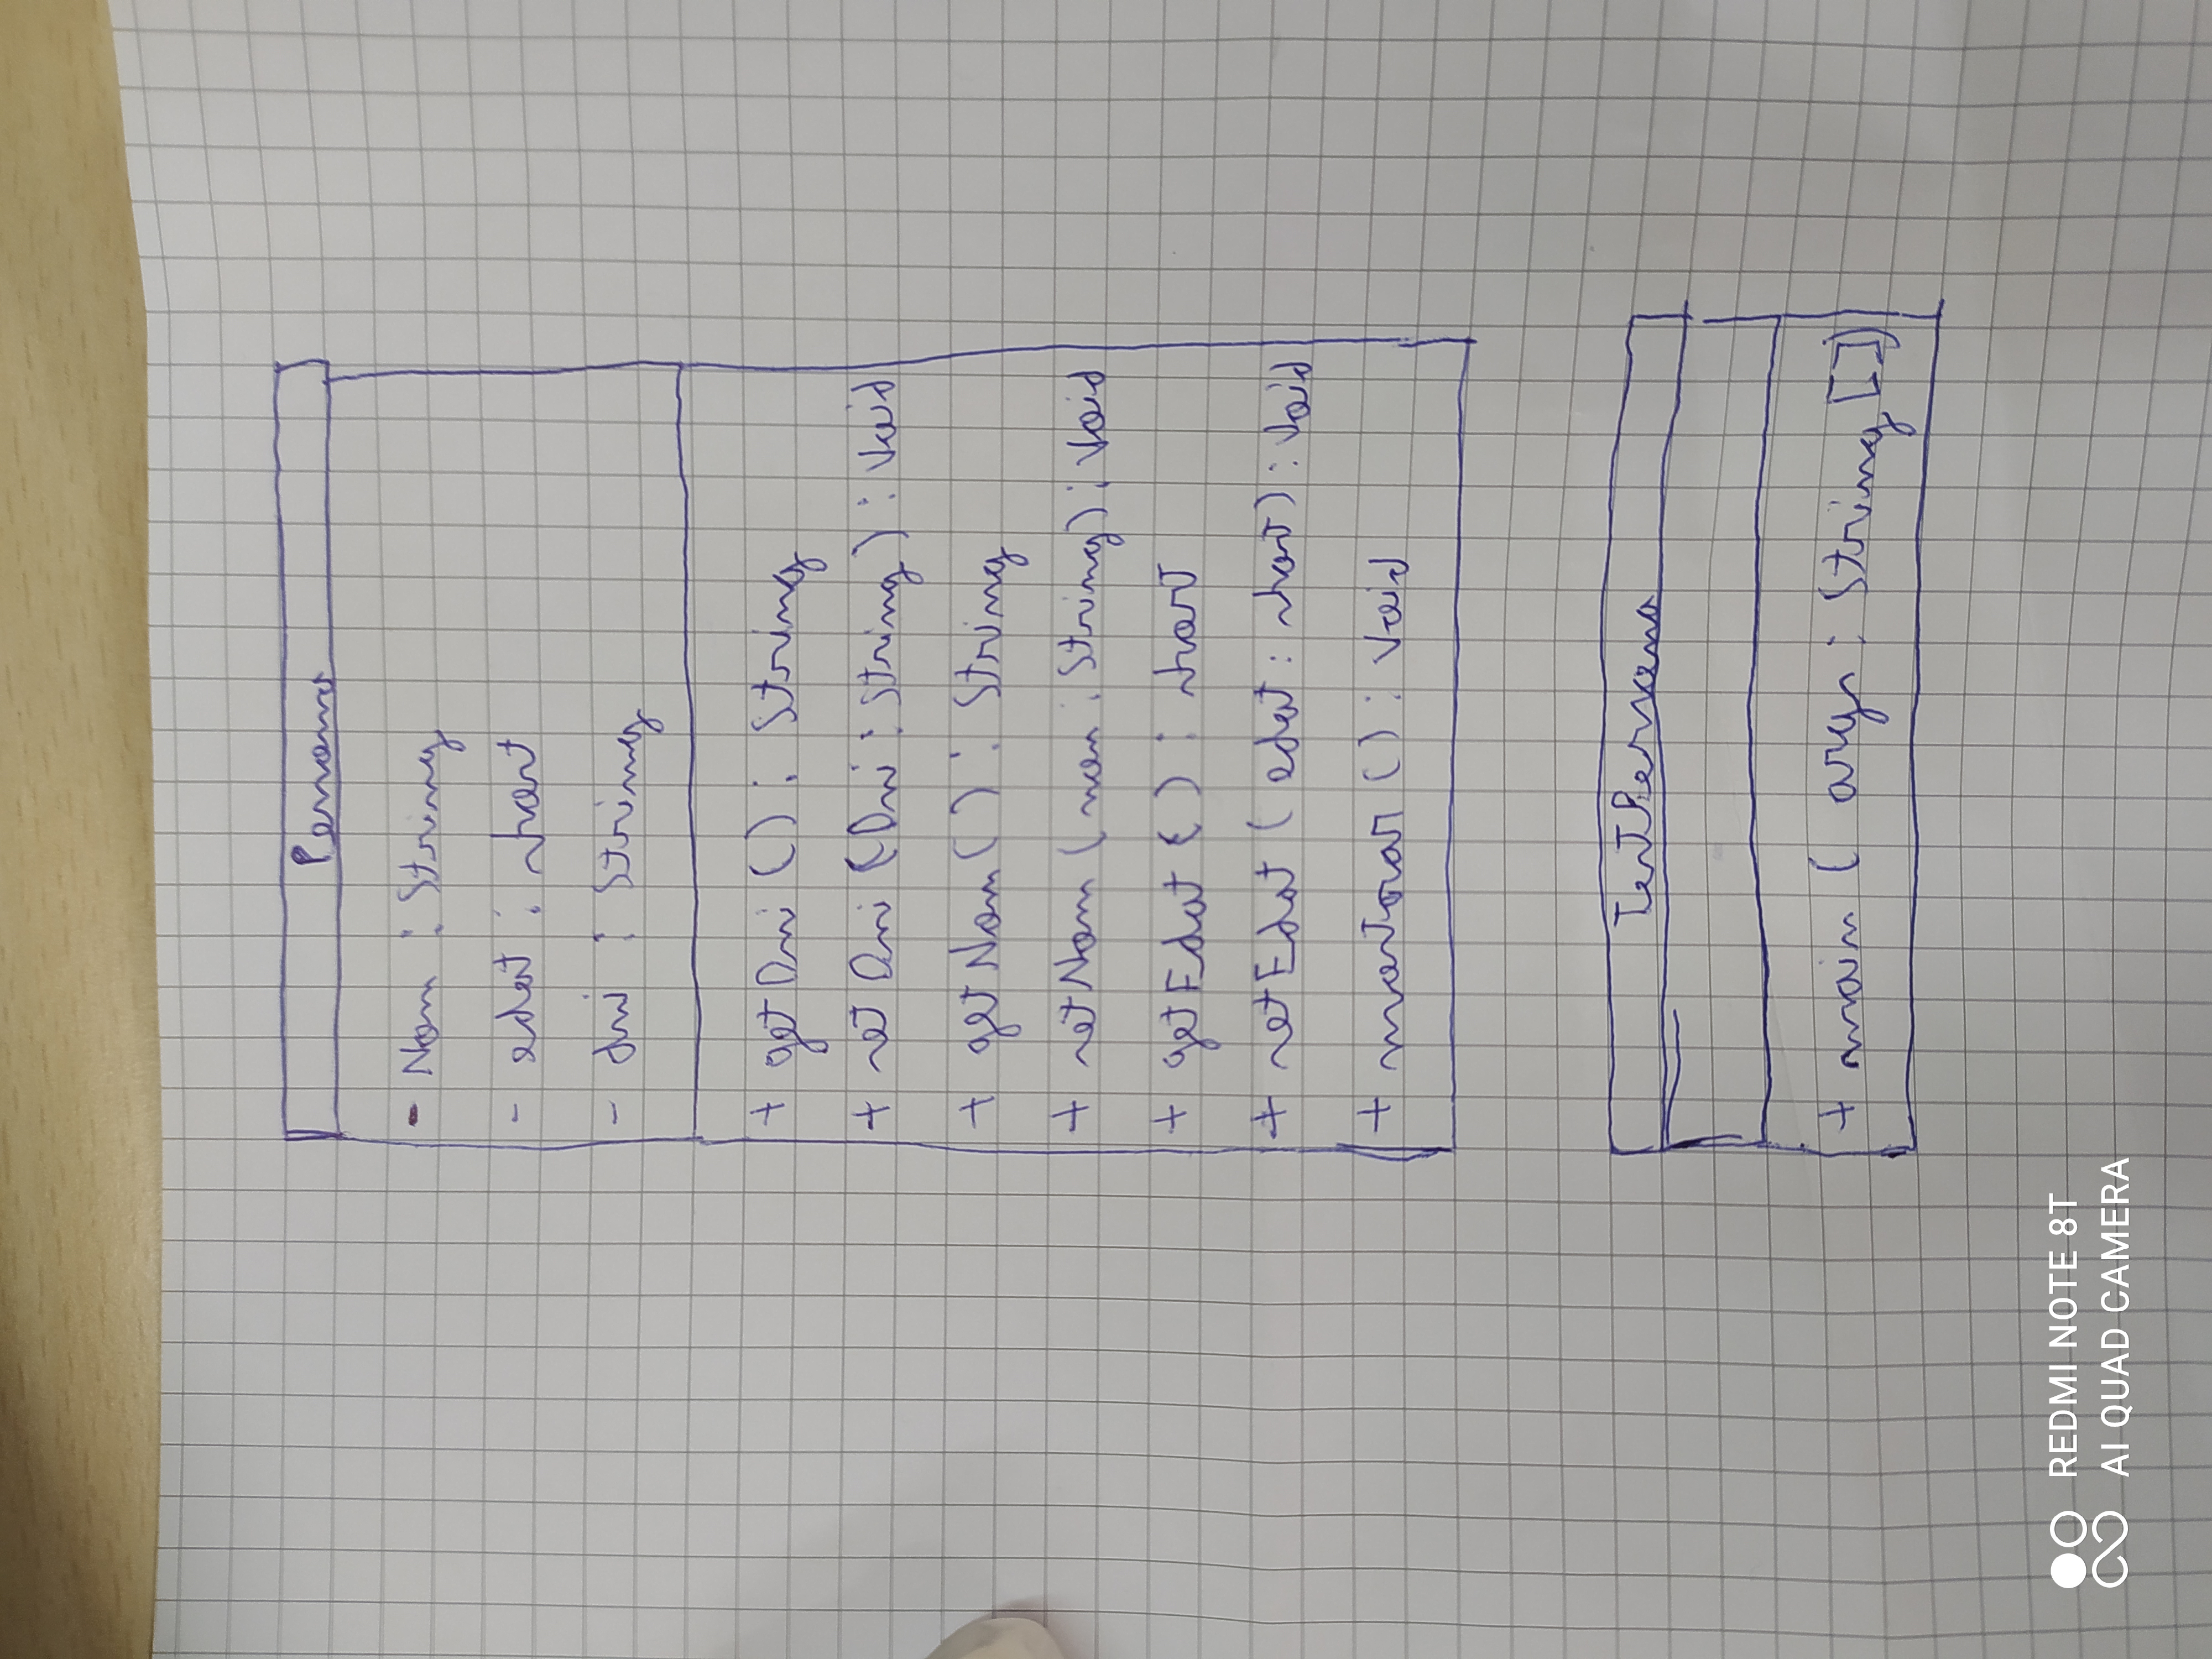 Persona
- Nom : String
- edat : short
- dni : String
+ getDni () : String
+ setDni (Dni : String) : Void
+ getNom () : String
+ setNom (nom : String) : Void
+ getEdat () : short
+ setEdat (edat : short) : Void
+ mostrar () : Void
TestPersona
+ main ( args : String [])
REDMI NOTE 8T
AI QUAD CAMERA